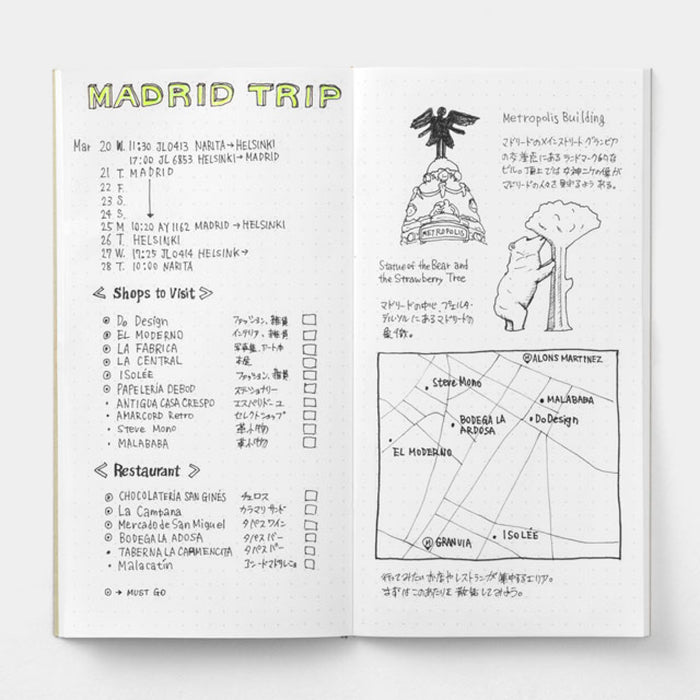 MADRID TRIP
Mar 20 W. 11:30 JL0413 NARITA→HELSINKI
17:00 JL 6853 HELSINKI→MADRID
21 T. MADRID
22 F.
23 S.
24 S.
25 M 10:20 AY1162 MADRID→HELSINKI
26 T. HELSINKI
27 W. 17:25 JL0414 HELSINK→
28 T. 10:00 NARITA
≪ Shops to Visit ≫
⦿ Do Design ファッション、雑貨
⦿ EL MODERNO インテリア、雑貨
⦿ LA FABRICA 写真集、アート本
⦿ LA CENTRAL 本屋
⦿ ISOLÉE ファッション、雑貨
⦿ PAPELERÍA DEBOD ステーショナリー
• ANTIGUA CASA CRESPO エスパドリーユ
• AMARCORD Retro セレクトショップ
• Steve Mono 革小物
• MALABABA 革小物
≪ Restaurant ≫
⦿ CHOCOLATERÍA SAN GINÉS チュロス
⦿ La Campana カラマリサンド
⦿ Mercado de San Miguel タパス ワイン
⦿ BODEGA LA ADOSA タパスバー
• TABERNA LA CARMENCITA タパスバー
• Malacatín
⦿ → MUST GO
Metropolis Building
マドリードのメインストリート グランビア
の交差点にあるランドマーク的な
ビル。頂上では女神ニケの像が
マドリードの人々を見守るよう
METROPOLIS
Statue of the Bear and
the Strawberry Tree
マドリードの中心 プエルタ・
デルソルにあるマドリードの
ALONS MARTINEZ
Steve Mono
MALABABA
BODEGA LA
ARDOSA
Do Design
EL MODERNO
M GRANVIA
ISOLÉE
行ってみたいお店やレストランが集中するエリア。
まずはこのあたりを散策してみよう。